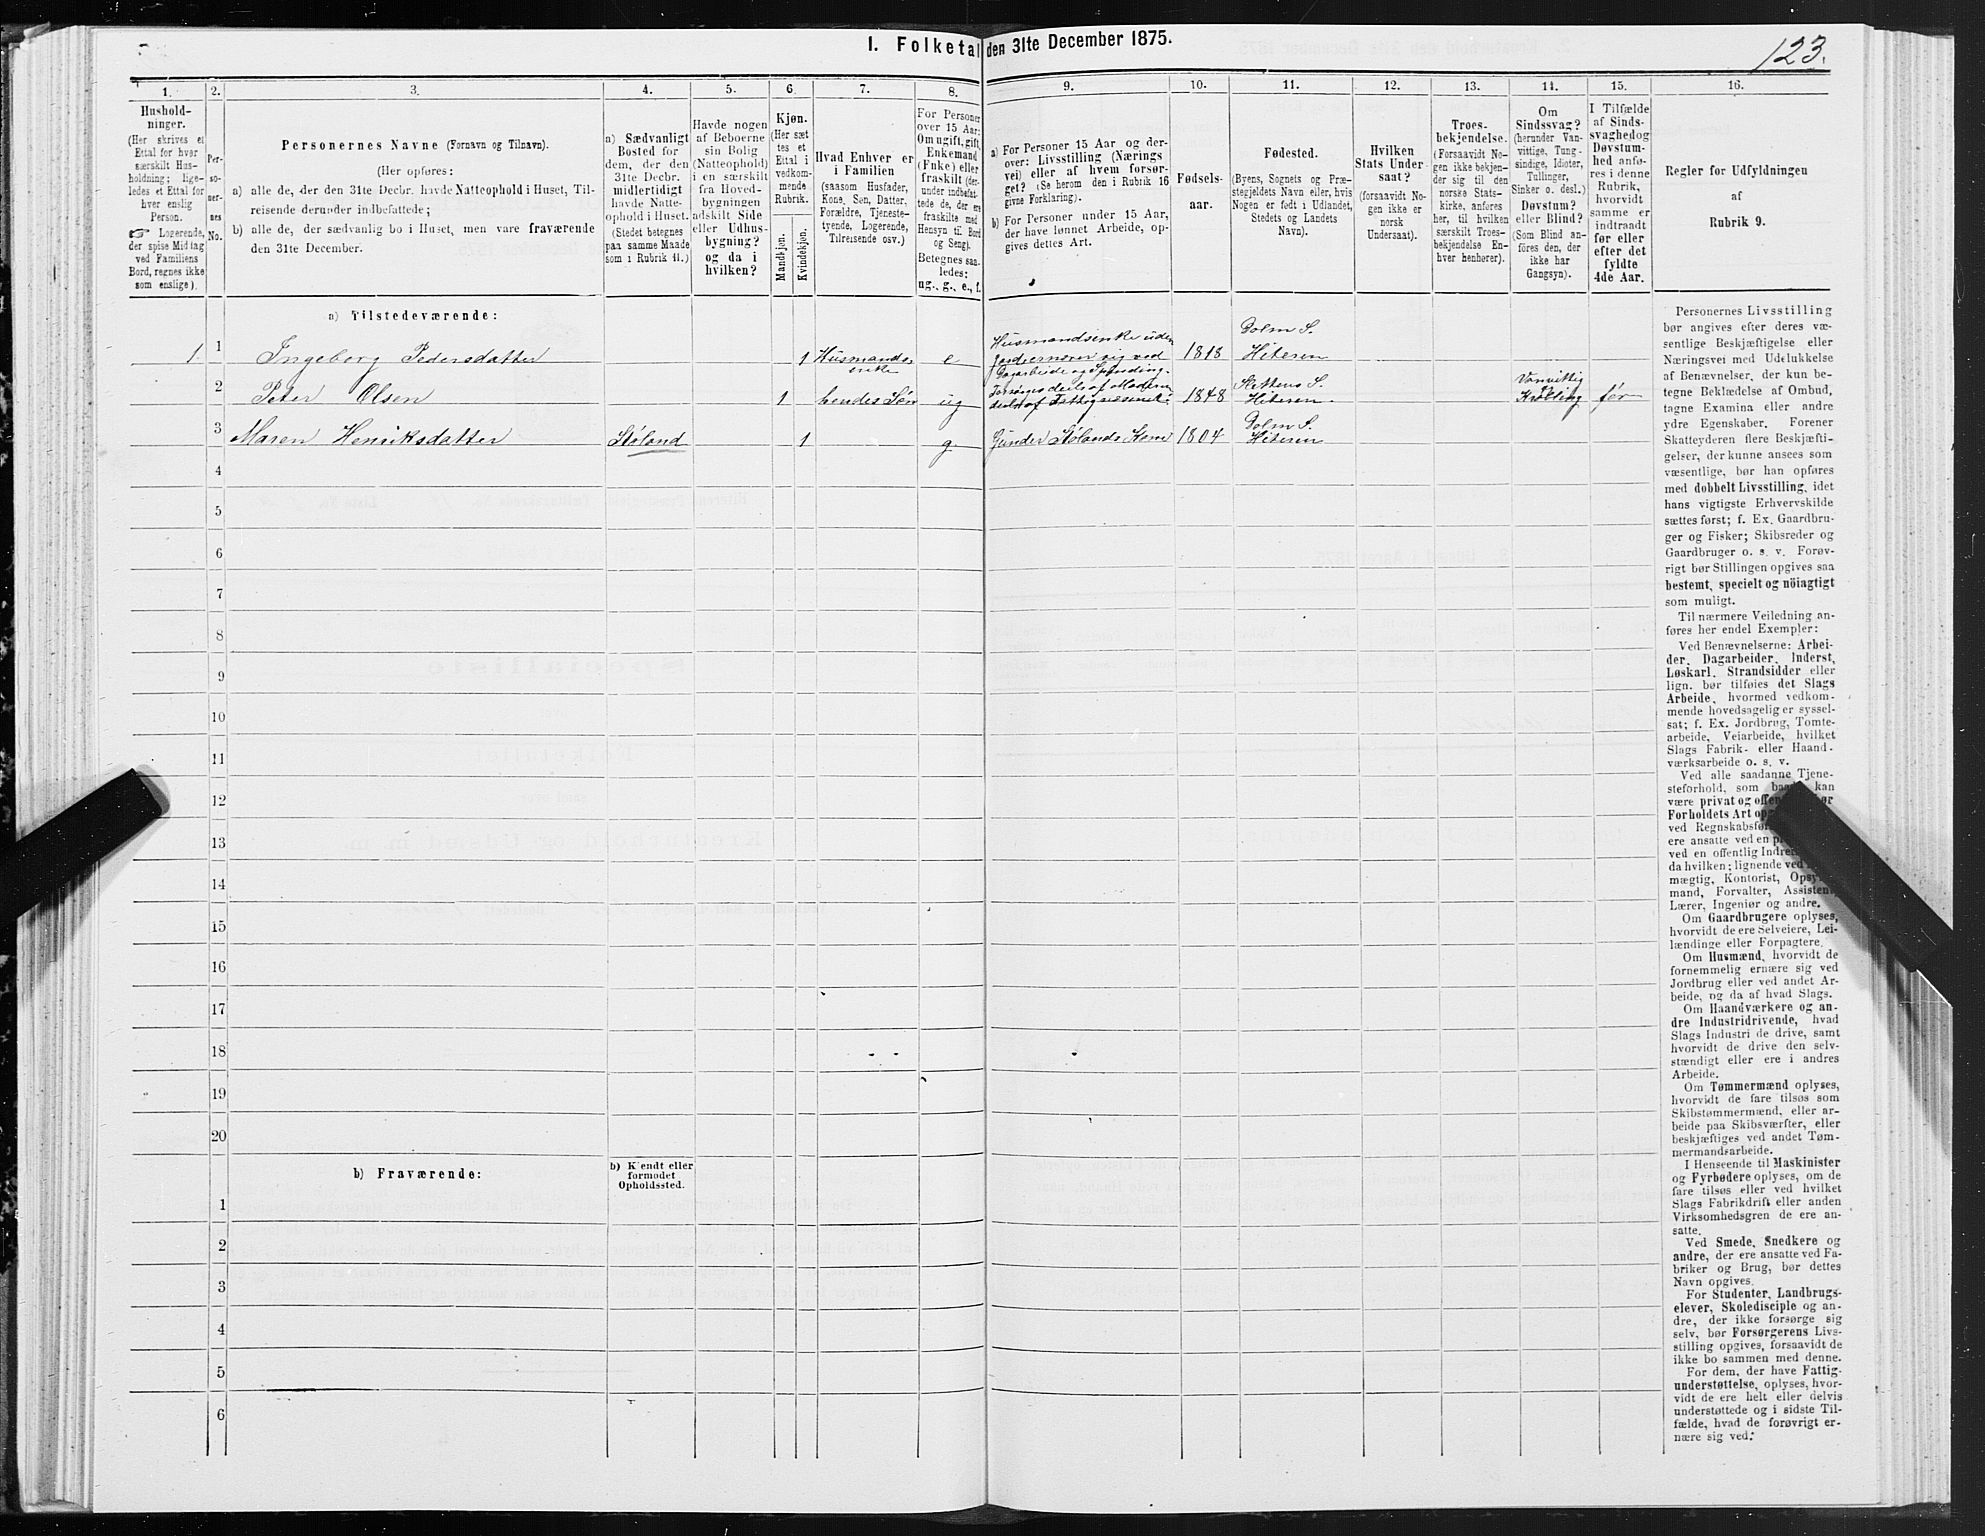 I. Folketal den 31te December 1875.
123.
1.
2.
3.
4.
5.
6.
7.
8.
9.
10.
11.
12.
13.
14.
15.
16.
Hushold-
ninger.
(Her skrives et
Ettal for hver
særskilt Hus-
holdning; lige-
ledes et Ettal for
hver enslig
Person.
☞ Logerende,
der spise Middag
ved Familiens
Bord, regnes ikke
som enslige).
Per-
so-
ner-
nes
No.
Personernes Navne (Fornavn og Tilnavn).
(Her opføres:
a) alle de, der den 31te Decbr. havde Natteophold i Huset, Til-
reisende derunder indbefattede;
b) alle de, der sædvanlig bo i Huset, men vare fraværende
den 31te December.
a) Sædvanligt
Bosted for
dem, der den
31te Decbr.
midlertidigt
havde Natte-
ophold i Huset.
(Stedet betegnes
paa samme Maade
som i Rubrik 11.)
Havde nogen
af Beboerne
sin Bolig
(Natteophold)
i en særskilt
fra Hoved-
bygningen
adskilt Side
eller Udhus-
bygning?
og da i
hvilken?
Kjøn.
(Her sæt
tes et
Ettal i
vedkom-
mende
Rubrik.
Mandkjøn.
Kvindekjøn.
Hvad Enhver er
i Familien
(saasom Husfader,
Kone, Søn, Datter,
Forældre, Tjeneste-
tyende, Logerende,
Tilreisende osv.)
For Personer
over 15 Aar:
Om ugift, gift,
Enkemand
(Enke) eller
fraskilt (der-
under indbefat-
tede de, der ere
fraskilte med
Hensyn til Bord
og Seng).
Betegnes saa-
ledes:
ug., g., e., f.
a) For Personer 15 Aar og der-
over: Livsstilling (Nærings
vei) eller af hvem forsør-
get? (Se herom den i Rubrik 16
givne Forklaring).
b) For Personer under 15 Aar,
der have lønnet Arbeide, op-
gives dettes Art.
Fødsels-
aar.
Fødested.
(Byens, Sognets og Præ-
stegjeldets Navn eller, hvis
Nogen er født i Udlandet,
Stedets og Landets
Navn).
Hvilken
Stats Under-
saat?
(forsaavidt No-
gen ikke er
norsk
Undersaat).
Troes-
bekjendelse.
(Forsaavidt No-
gen ikke bekjen-
der sig til den
norske Stats-
kirke, anføres
her, til hvilken
særskilt Troes-
bekjendelse En-
hver henhører).
Om
Sindssvag?
(herunder Van-
vittige, Tung-
sindige, Idioter,
Tullinger,
Sinker o. desl.)
Døvstum?
eller Blind?
(Som Blind an-
føres den, der
ikke har
Gangsyn).
I Tilfælde
af Sinds-
svaghed og
Døvstum-
hed anfø-
res i denne
Rubrik,
hvorvidt
samme er
indtraadt
før eller
efter det
fyldte
4de Aar.
Regler for Udfyldningen
af
Rubrik 9.
a) Tilstedeværende:
1 1 Ingeborg Pedersdatter 1 Husmands enke e Husmandsenke uden Jord ernærer sig ved Dagarbeide og Spinding. 1818 Dolm S. Hiteren
2 Peter Olsen 1 hendes Søn ug 1848 S. Hiteren. Vanvittig før
3 Maren Henriksdatter Støland 1 g. Gunder Stølands Kone 1804 Dolm S. Hiteren
4
5
6
7
8
9
10
11
12
13
14
15
16
17
18
19
20
b) Fraværende:
b) Kjendt eller
formodet
Opholdssted.
1
2
3
4
5
6
Personernes Livsstilling
bør angives efter deres væ-
sentlige Beskjæftigelse eller
Næringsvei med Udelukkelse
af Benævnelser, der kun be-
tegne Beklædelse af Ombud,
tagne Examina eller andre
ydre Egenskaber. Forener
Skatteyderen flere Beskjæfti-
gelser, der kunne ansees som
væsentlige, bør han opføres
med dobbelt Livsstilling, idet
hans vigtigste Erhvervskilde
sættes først; f. Ex. Gaardbru-
ger og Fisker; Skibsreder og
Gaardbruger o. s. v. Forøv-
rigt bør Stillingen opgives saa
bestemt, specielt og nöiagtigt
som muligt.
Til nærmere Veiledning an-
føres her endel Exempler:
Ved Benævnelserne: Arbei-
der, Dagarbeider, Inderst,
Løskarl, Strandsidder eller
lign. bør tilføies det Slags
Arbeide, hvormed vedkom-
mende hovedsagelig er syssel-
sat; f. Ex. Jordbrug, Tomte-
arbeide, Veiarbeide, hvilket
Slags Fabrik- eller Haand-
værksarbeide o. s. v.
Ved alle saadanne Tjene-
steforhold, som kan
være privat og
Forholdets Art
ved
ere ansatte ved en
ved en offentlig
da hvilken; lignende ved
mægtig, Kontorist,
mand, Forvalter, Assistent,
Lærer, Ingeniør og andre.
Om Gaardbrugere oplyses,
hvorvidt de ere Selveiere, Lei-
lændinge eller Forpagtere.
Om Husmænd, hvorvidt de
fornemmelig ernære sig ved
Jordbrug eller ved andet Ar-
beide, og da af hvad Slags.
Om Haandværkere og an-
dre Industridrivende, hvad
Slags Industri de drive, samt
hvorvidt de drive den selv-
stændigt eller ere i andres
Arbeide.
Om Tømmermænd oplyses,
hvorvidt de fare tilsøs som
Skibstømmermænd, eller ar-
beide paa Skibsværfter, eller
beskjæftiges ved andet Tøm-
mermandsarbeide.
I Henseende til Maskinister
og Fyrbødere oplyses, om de
fare tilsøs eller ved hvilket
Slags Fabrikdrift eller anden
Virksomhedsgren de ere an-
satte.
Ved Smede, Snedkere og
andre, der ere ansatte ved Fa-
briker og Brug, bør dettes
Navn opgives.
For Studenter, Landbrugs-
elever, Skoledisciple og an-
dre, der ikke forsørge sig
selv, bør Forsørgerens Livs-
stilling opgives, forsaavidt de
ikke bo sammen med denne.
For dem, der have Fattig-
understøttelse, oplyses, hvor-
vidt de ere helt eller delvis
understøttede og i sidste Til-
fælde, hvad de forøvrigt er-
nære sig ved.